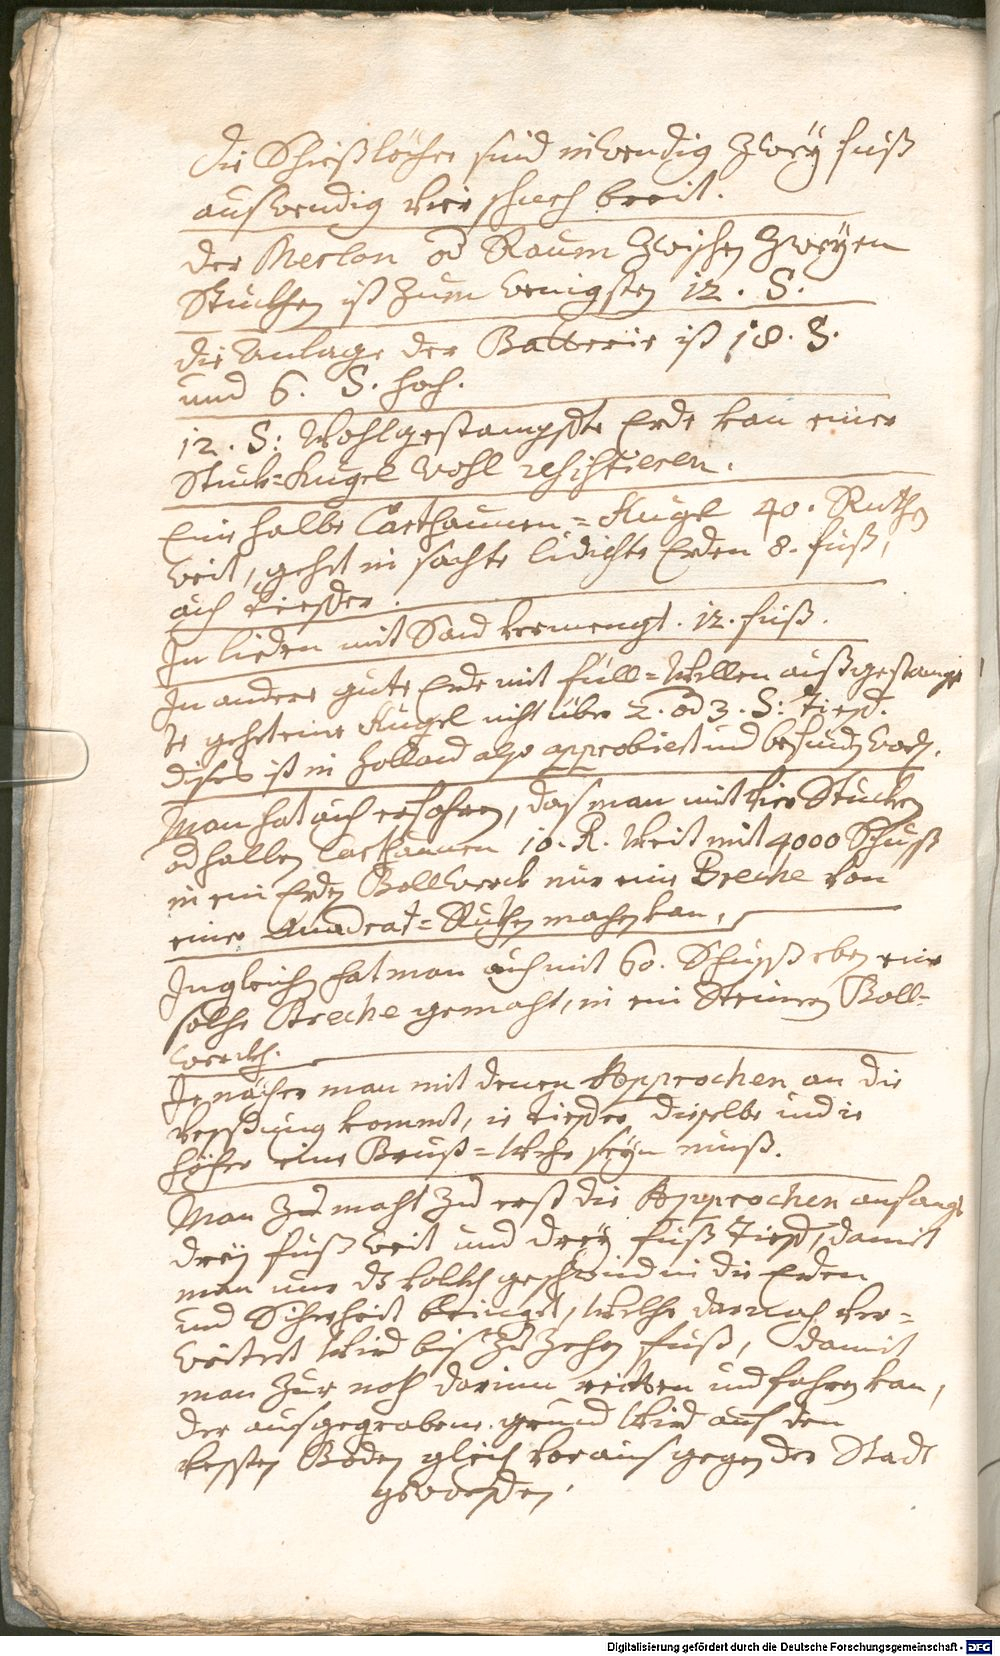 die Schießlöcher sind inwendig zweÿ fuß
auswendig vier schuch breit.
Der Merlon od Raum zwischen zweÿen
Stucken ist zum wenigsten 12. S.
die Anlage der Batterie ist 18. S.
und 6. S. hoch.
12. S: wohlgestampfte Erde kan einer
Stuck=Kugel wohl resistieren.
Eine halbe Carthaunen=Kugel 40. Ruthen
weit, gehet in sachte Erden 8. fuß,
auch tieffer.
In mit Sand vermengt. 12. fuß.
In andere gute Erde mit füll=Wellen außgestampf
te gehet eine Kugel nicht über 2. od 3. S: tieff.
dises ist in Holland also approbiert und befunden word.
Man hat auch erfahren, das man mit vier Stucken
od halben Carthaunen 10. R. weit mit 4000 Schuss
in ein Erden Bollwerck nur eine Breche von
einer Quadrat=Ruthen machen kan,
Ingleichen hat man auch mit 60. Schuss eben eine
solche Breche gemacht, in ein Steinern Boll=
werck.
Je näher man mit denen Approchen an die
vestung kommt, ie tieffer dieselbe und ie
höher eine Brust=wehr seÿn muß.
Man macht zu erst die Approchen anfangs
dreÿ fuß weit und dreÿ fuß tieff, damit
man nur dz volck geschwind in die Erden
und Sicherheit bringet, welche darnach ver=
weitert wird bis zu zehen fuß, damit
man zur noth darinn reitten und fahren kan,
der ausgegrabene grund wird auf den
vesten Boden gleich voraus gegen der Stadt
geworffen.
Digitalisierung gefördert durch die Deutsche Forschungsgemeinschaft - DFG